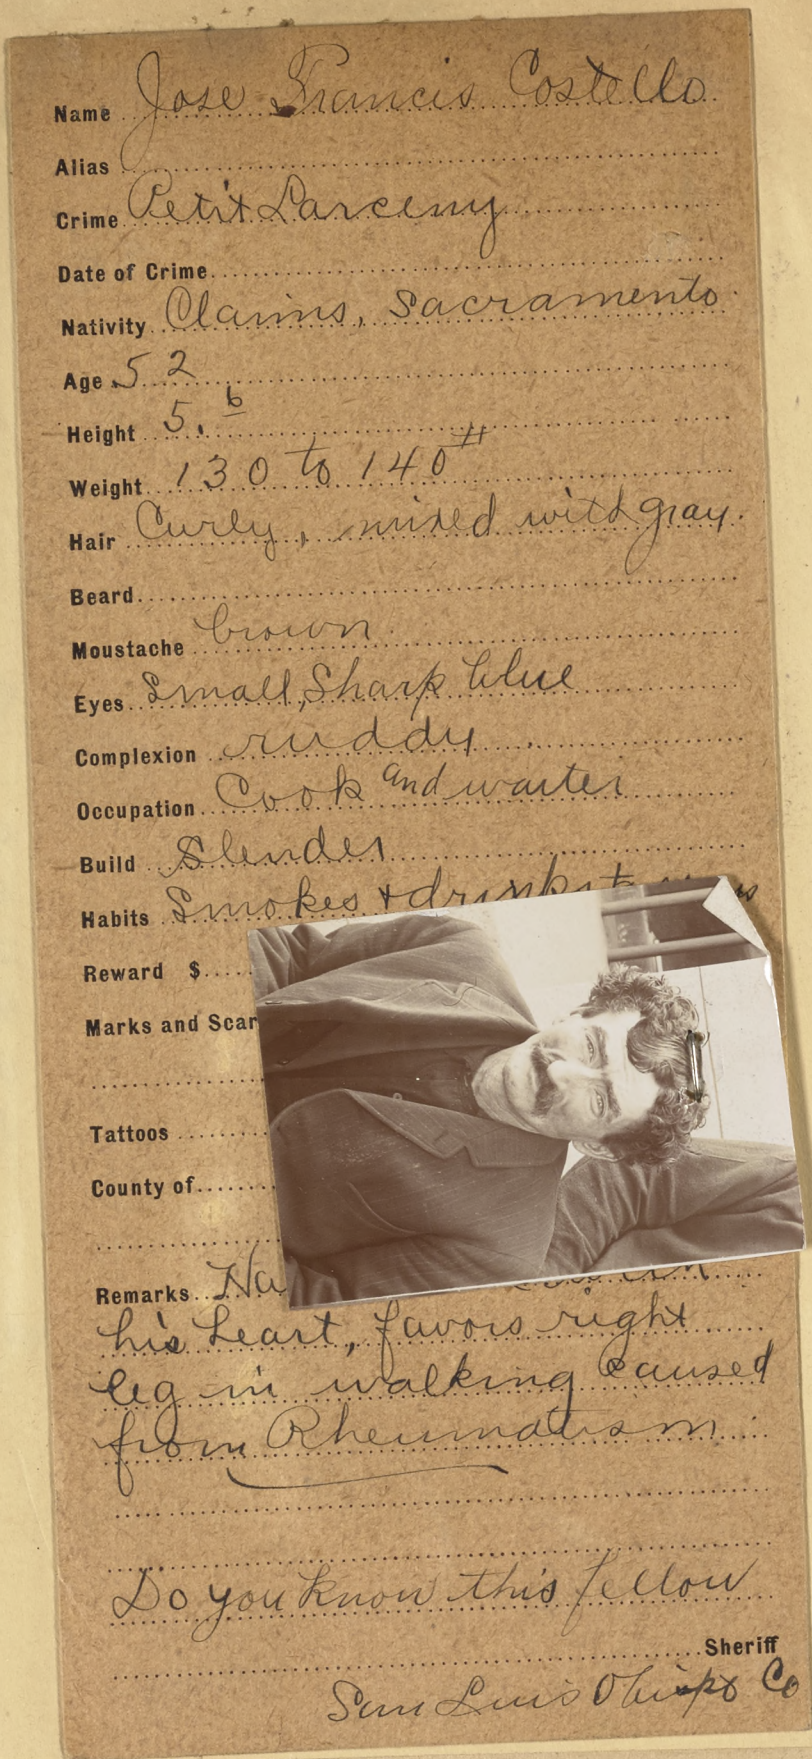 Name Jose Francis Costello
Alias
Crime Petit Larceny
Date of Crime
Nativity Claims, Sacramento
Age 52
Height 5. 6
Weight 130 to 140#
Hair Curly, mixed with gray.
Beard
Moustache brown
Eyes Small, Sharp blue
Complexion ruddy
Occupation Cook and waiter
Build Slender
Habits Smokes + drinks
Reward $
Marks and Scar
Tattoos
County of
Remarks
his heart, favors right
leg in walking caused
from Rheumatism
Do you know this fellow
Sheriff
San Luis Obispo Co